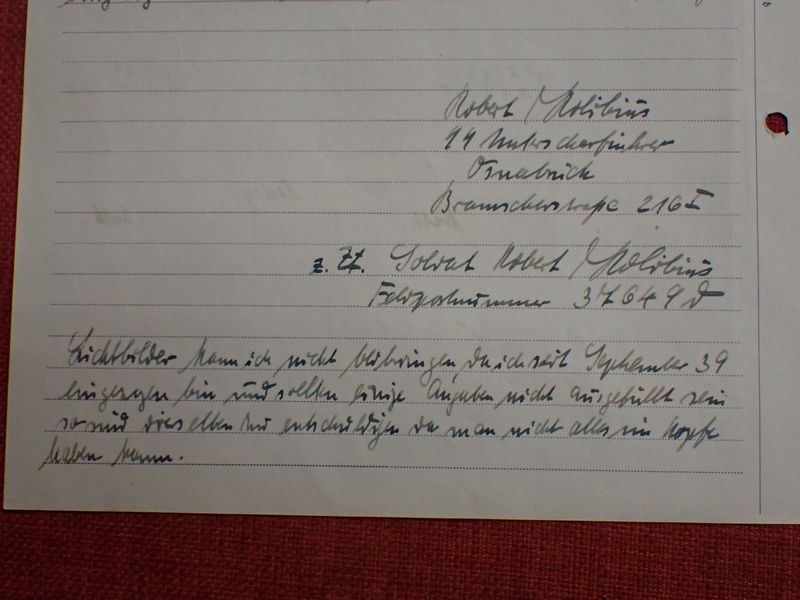 Robert Kolibius
SS Unterscharführer
Osnabrück
Bramscherstraße 216 I
z. Zt. Soldat Robert Kolibius
Feldpostnummer 37649 D
Lichtbilder kann ich nicht beibringen, da ich seit September 39
eingezogen bin und sollten einige Angaben nicht ausgefüllt sein
so sind dieselben zu entschuldigen da man nicht alles im Kopfe
haben kann.